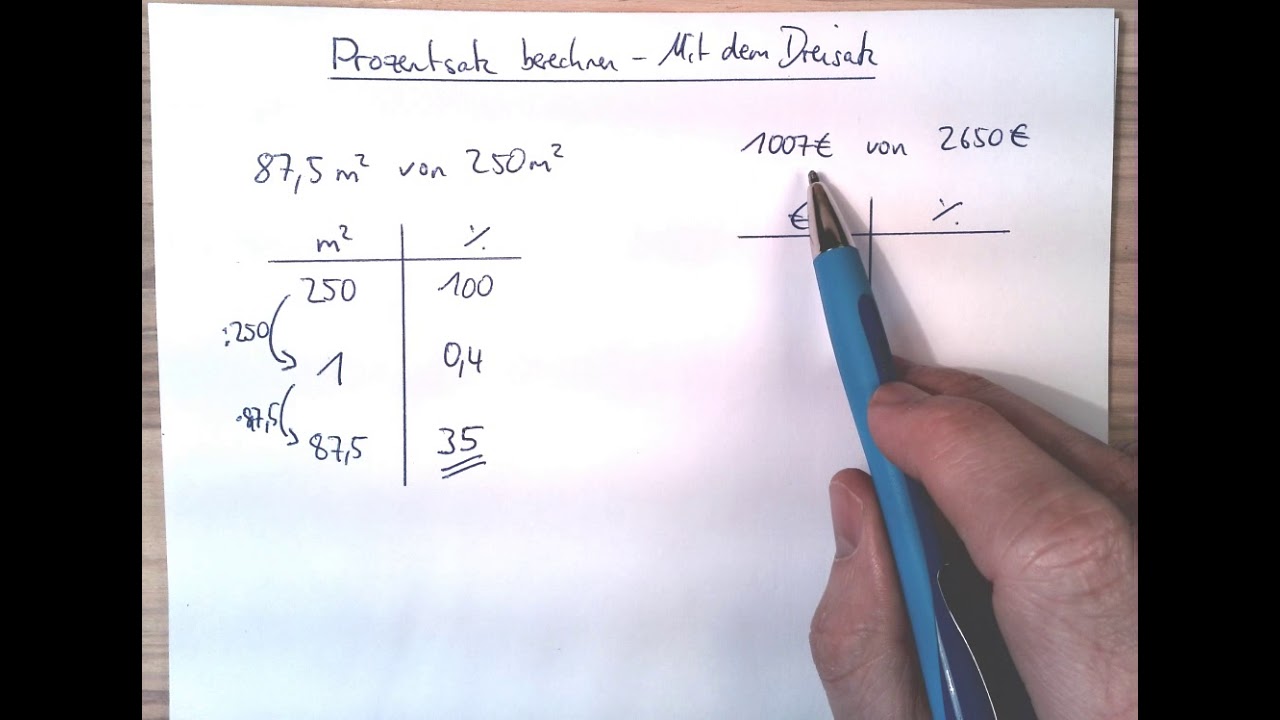 Prozentsatz berechnen – Mit dem Dreisatz
87,5 m² von 250 m²
m² %
250 100
:250
1 0,4
·87,5
87,5 35
1007€ von 2650€
€ %